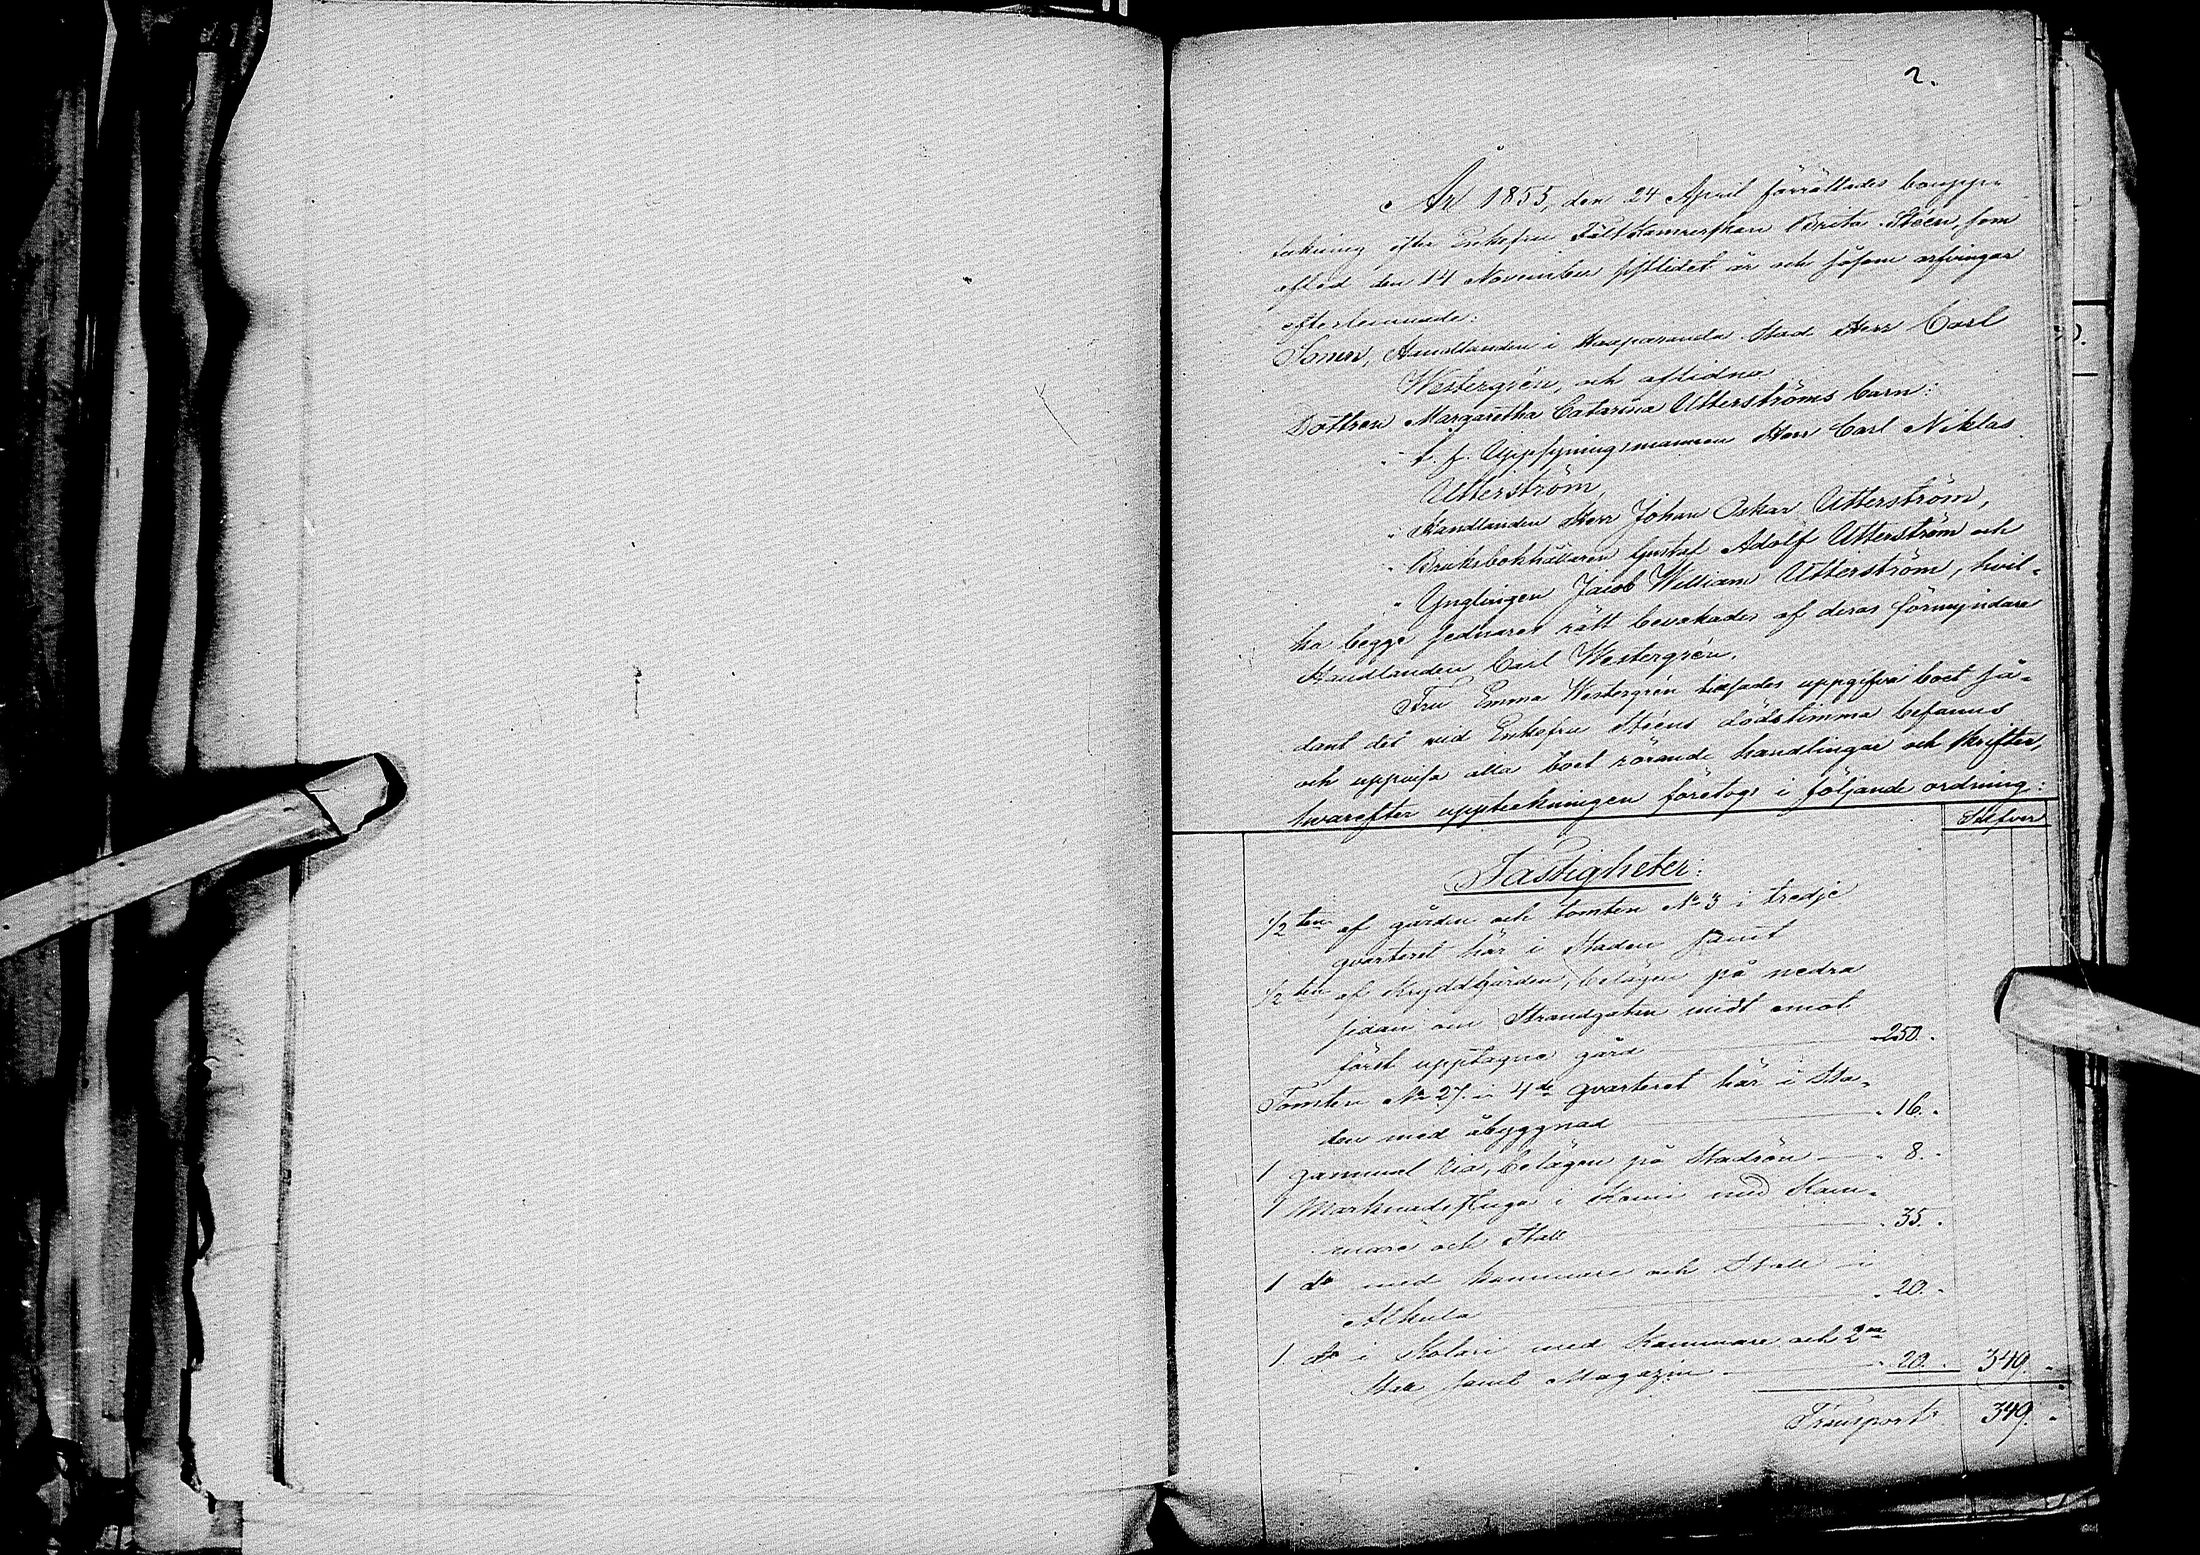 2.
År 1855, den 24 April förrättades boupp-
tekning efter Enkefru Fältkamrerskan Brita Stéen, som
afled den 14 November sistlidet år och såsom arfvingar
efterlemnade:
Sonen, Handlanden i Haaparanda Stad Herr Carl
Westergrén, och aflidna
Dottren Margaretha Catarina Utterströms barn:
" t. f. Uppsyningsmannen Herr Carl Niklas
Utterström,
" Handlanden Herr Johan Oskar Utterström,
" Bruksbokhållaren Gustaf Adolf Utterström och
" Ynglingen Jacob William Utterström, hvil-
ka begge sednares rätt bevakades af deras förmyndare
Handlanden Carl Westergrén.
Fru Emma Westergrén uppgifva boet så-
dant det vid Enkefru Stéens dödstimma befanns
och uppvisa alla boet rörande handlingar och skrifter,
hvarefter uppteckningen företogs i följande ordning:
Silfver
Fastigheter:
1/2 ten af gården och tomten No 3 i tredje
qvarteret här i Staden samt
1/2 ten af Kryddgården, belägen på nedra
sidan om Strandgatan midt emot
först upptagne gård 250. "
Tomten No 27. i 4de qvarteret här i Sta-
den med åbyggnad " 16. "
1 gammal ria, belägen på Stadsön " 8. "
1 Marknadsstuga i Kemi med Kam-
mare och Stall " 35. "
1 do med kammare och Stall i
Alkula " 20. "
1. do i Kolari med Kammare och 2ne
Stall samt Magazin " 20. " 349. "
Transport: 349. "